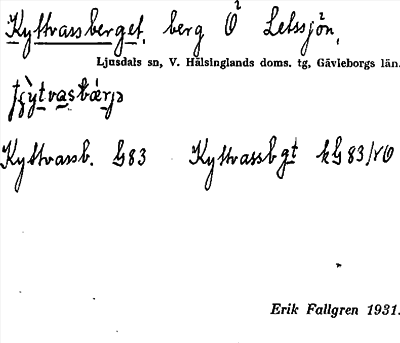 Kyttvassberget, berg Ö Letssjön,
Ljusdals sn, V. Hälsinglands doms. tg, Gävleborgs län.
Kyttvassb. G83 Kyttvassbgt kG83/vO
Erik Fallgren 1931.